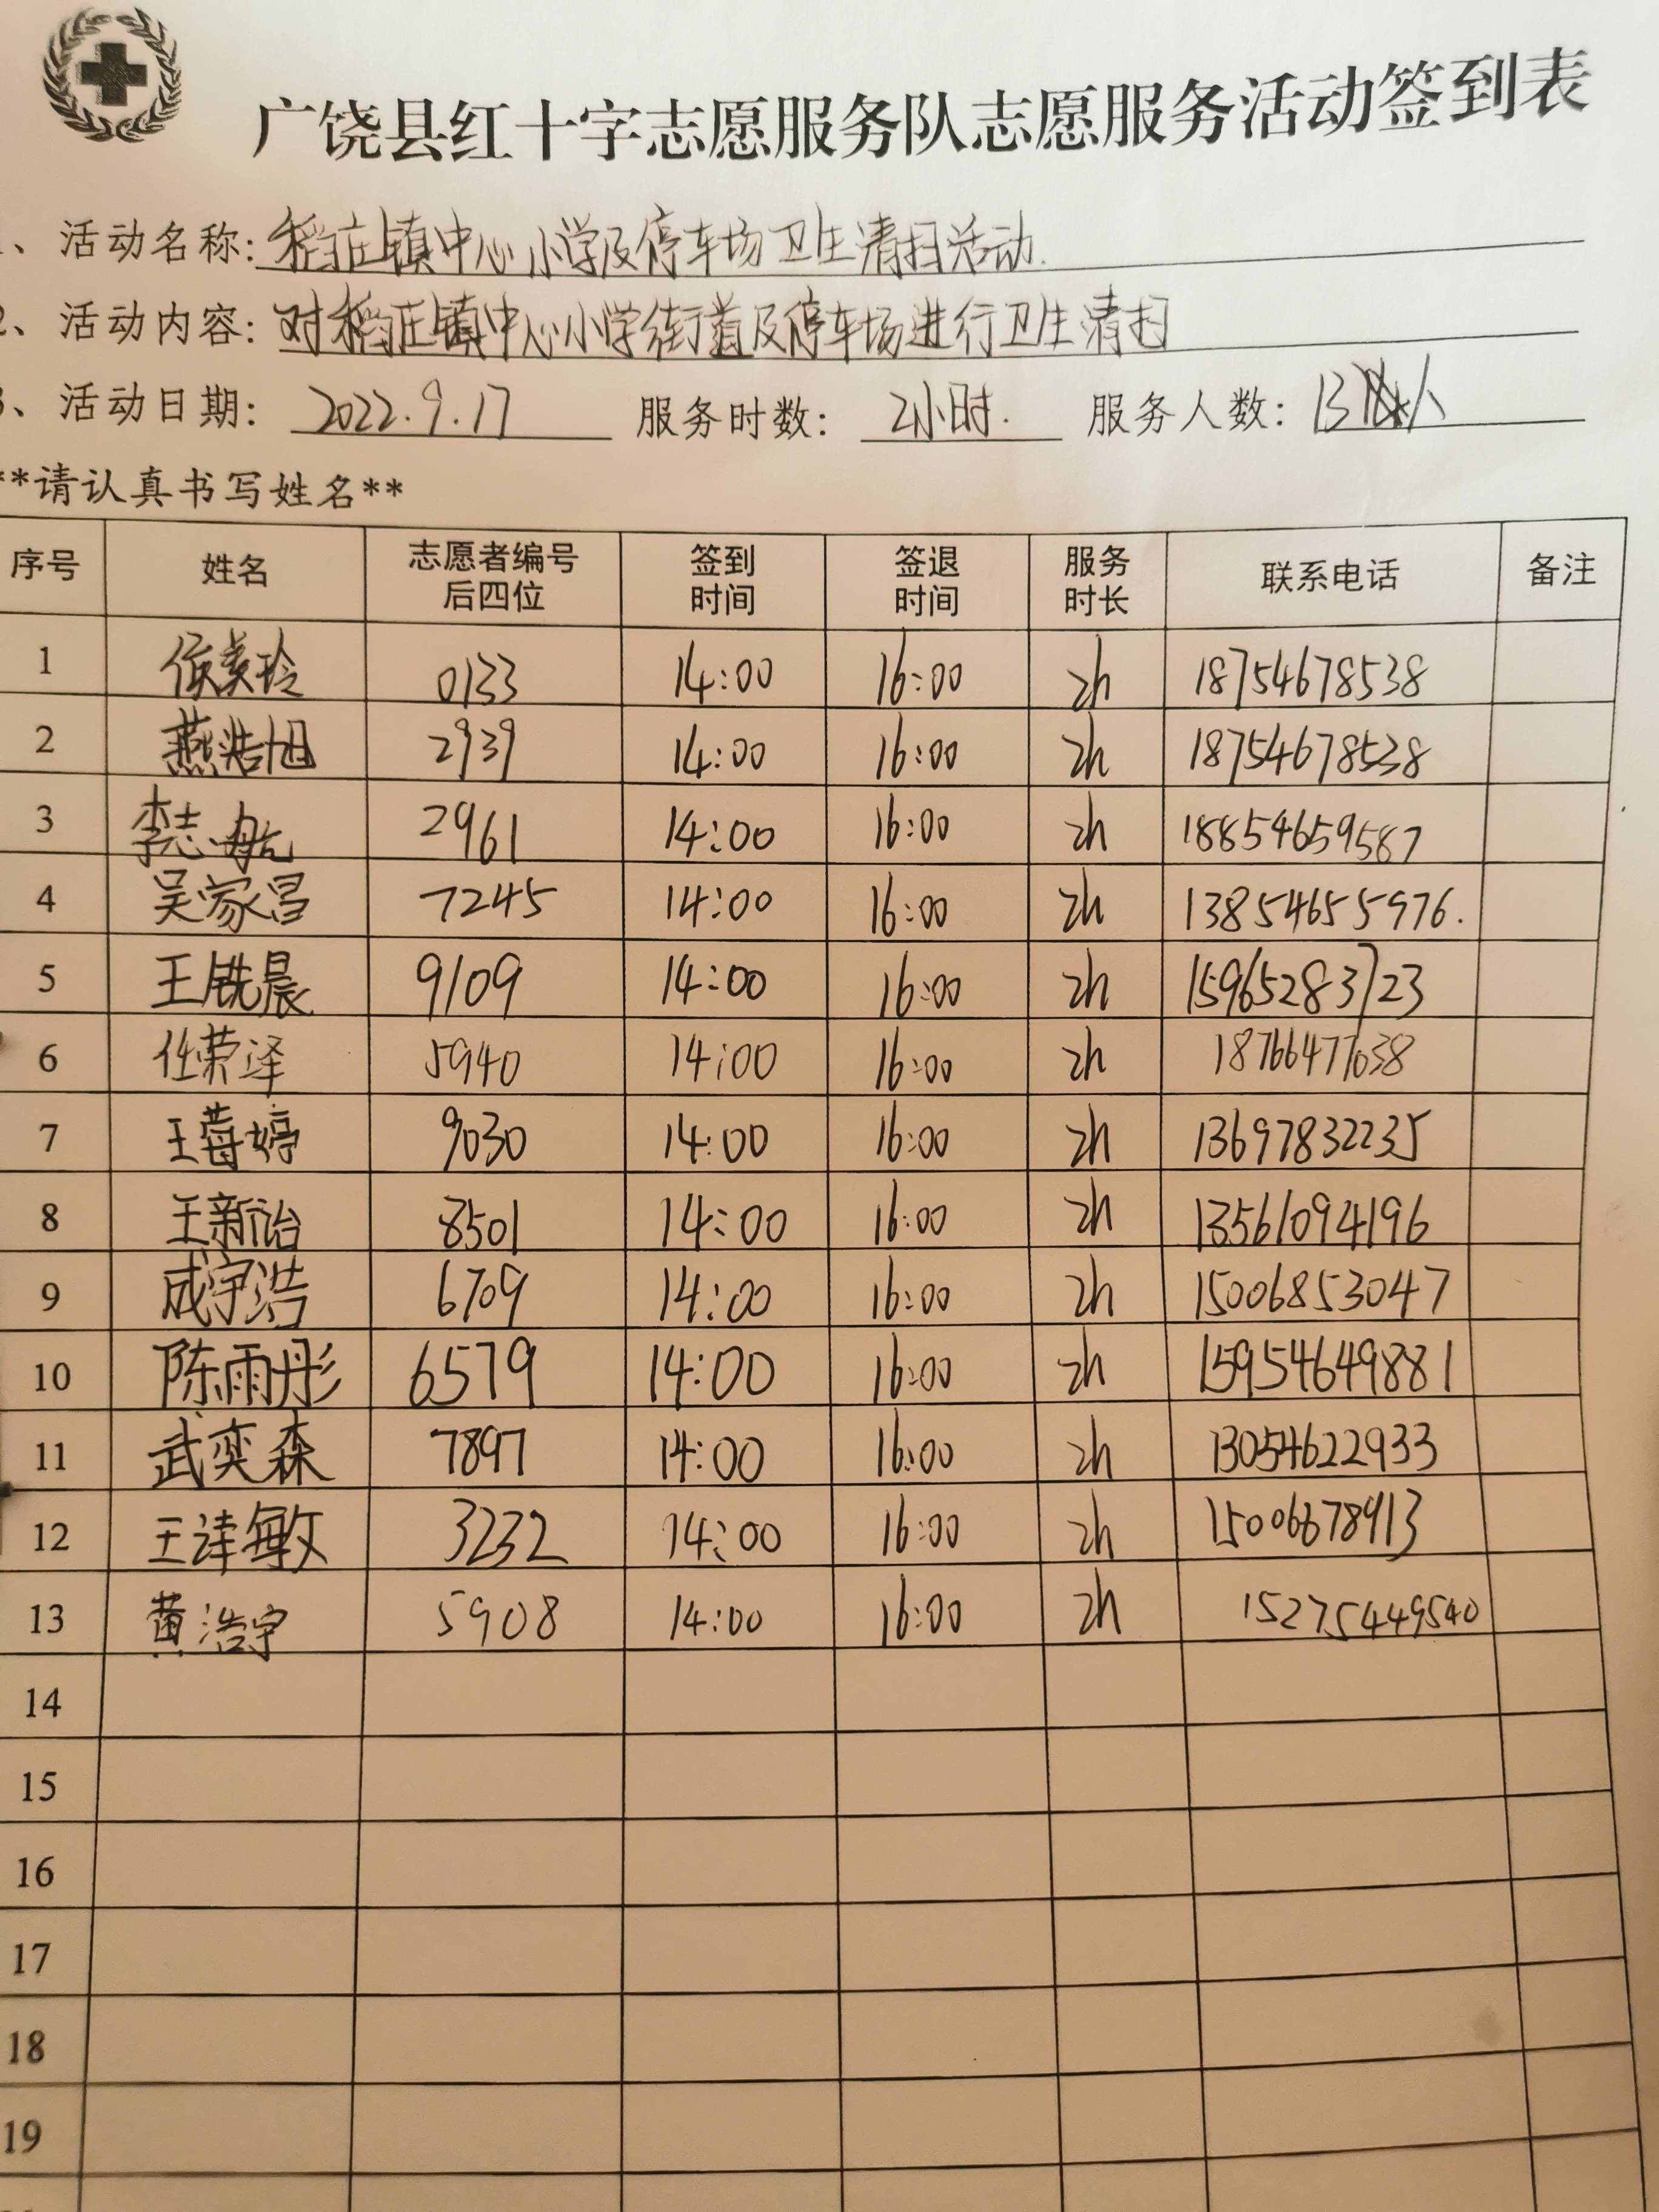 广饶县红十字志愿服务队志愿服务活动签到表
、活动名称: 稻庄镇中心小学及停车场卫生清扫活动.
2、活动内容: 对稻庄镇中心小学街道及停车场进行卫生清扫
3、活动日期: 2022.9.17 服务时数: 2小时. 服务人数: 13人
**请认真书写姓名**
序号 姓名 志愿者编号后四位 签到时间 签退时间 服务时长 联系电话 备注
1 侯美玲 0133 14:00 16:00 2h 18754678538
2 燕浩旭 2939 14:00 16:00 2h 18754678538
3 李志航 2961 14:00 16:00 2h 18854659587
4 吴家昌 7245 14:00 16:00 2h 13854655976.
5 王铣晨 9109 14:00 16:00 2h 15965283723
6 任荣泽 5940 14:00 16:00 2h 18766477038
7 王莓婷 9030 14:00 16:00 2h 13697832235
8 王新诒 8501 14:00 16:00 2h 13561094196
9 成宇浩 6709 14:00 16:00 2h 15006853047
10 陈雨彤 6579 14:00 16:00 2h 15954649881
11 武奕森 7897 14:00 16:00 2h 13054622933
12 3232 14:00 16:00 2h 15006678913
13 黄浩宇 5908 14:00 16:00 2h 15275449540
14
15
16
17
18
19